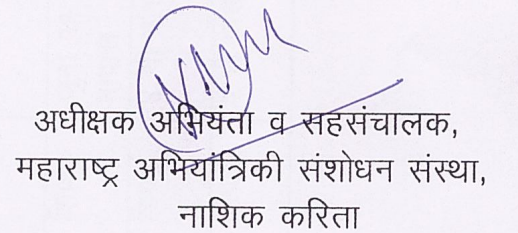 अधीक्षक अभियंता व सहसंचालक,
महाराष्ट्र अभियांत्रिकी संशोधन संस्था,
नाशिक करिता